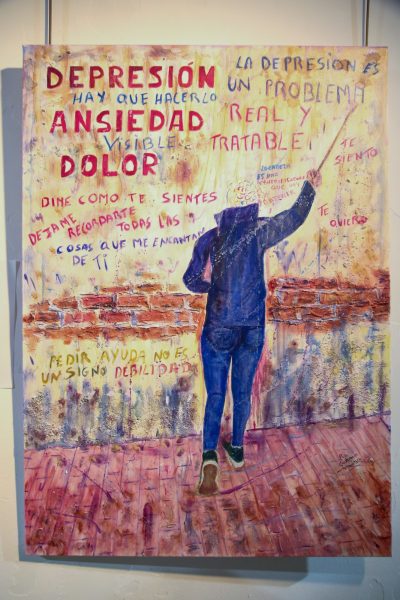 DEPRESIÓN
HAY QUE HACERLO
ANSIEDAD
VISIBLE
DOLOR
LA DEPRESION ES
UN PROBLEMA
REAL Y
TRATABLE!
TE
SIENTO
TE
QUIERO
DIME COMO TE SIENTES
DEJAME
RECORDARTE
TODAS LAS
COSAS QUE ME ENCANTAN
DE TÍ
PEDIR AYUDA NO ES
UN SIGNO DEBILIDAD